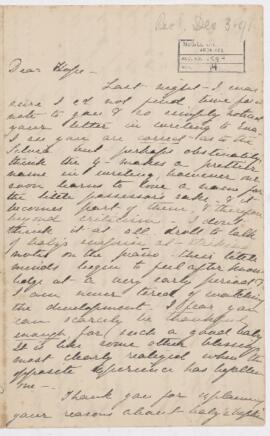 Rec'd Dec 3.91
Dear Hope -
Last night - I was
since I c'd not find time for a
note to you & so simply noticed
your letter in writing to
I see you are correct as to the
but perhaps obstinately,
think the y - makes a prettier
name in writing, however one
soon learns to love a name for
the little possessor's sake, & it
becomes part of them, & therefore
beyond criticism - I don't
think it at all droll to talk
of baby's surprise at
notes on the piano - their little
minds begin to feel after know-
ledge at a very early period &
I am never tired of watching
the development - I fear you
can scarcely be thankful
enough for such a good baby
It is like some other blessings
most clearly realized when the
opposite experience has befallen
one -
Thank you for explaining
your reasons about baby's